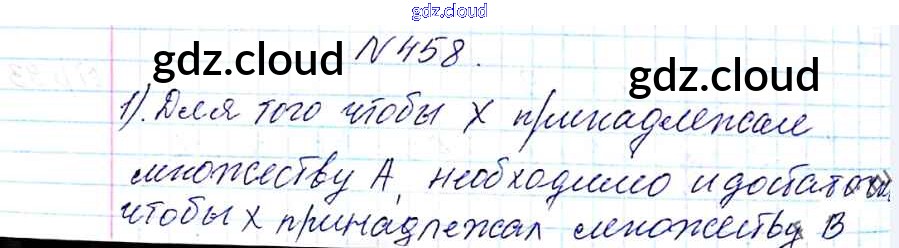 gdz.cloud
N 458.
gdz.cloud gdz.cloud
1). Для того чтобы X принадлежал
множеству A, необходимо и достаточн
чтобы X принадлежал множеству B